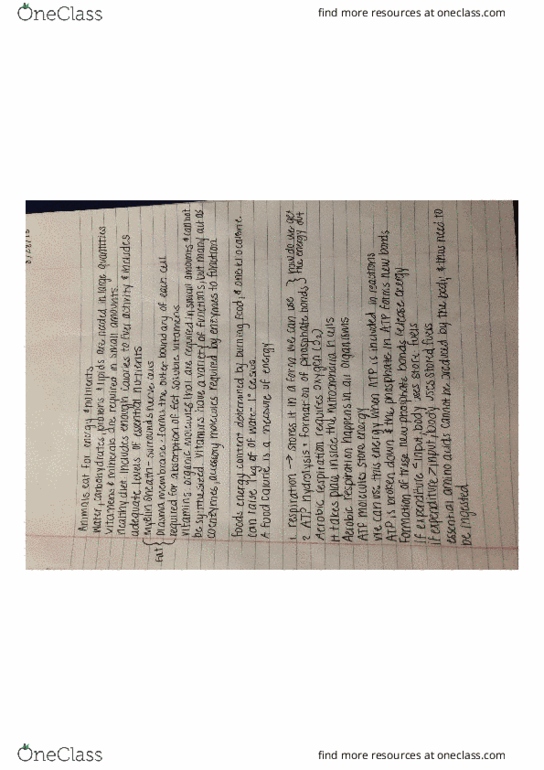 OneClass
find more resources at oneclass.com
Animals eat for energy & nutrients
Water, carbohydrates, proteins & lipids are needed in large quantities
vitamens & minerals are required in small amounts.
Healthy diet includes enough calories to fuel activity & includes
adequate levels of essential nutrients
Fat
Myelin sheath - surrounds nerve cells
Plasma membrane - forms the outer boundary of each cell
required for absorption of fat soluble vitamens
Vitamins: organic molecules that are required in small amounts & cannot
be synthesized. Vitamins have a variety of functions, but many act as
coenzymes, accessory molecules required by enzymes to function
Foods energy content determined by burning food, & one kilo calorie
can raise 1 kg of water 1° celsius
A food calorie is a measure of energy
1. respiration → stores it in a form we can use
2. ATP hydrolysis + formation of phosphate bonds
how do we get
the energy out
Aerobic respiration requires oxygen (O2)
It takes place inside the mitochondria in cells
Aerobic respiration happens in all organisms
ATP molecules store energy
We can use this energy when ATP is included in reactions
ATP is broken down & the phosphate in ATP forms new bonds
Formation of these new phosphate bonds release energy
if expenditure = input, body uses store fuels
if expenditure > input, body uses stored fuels
essential amino acids cannot be produced by the body, & thus need to
be ingested
OneClass
find more resources at oneclass.com